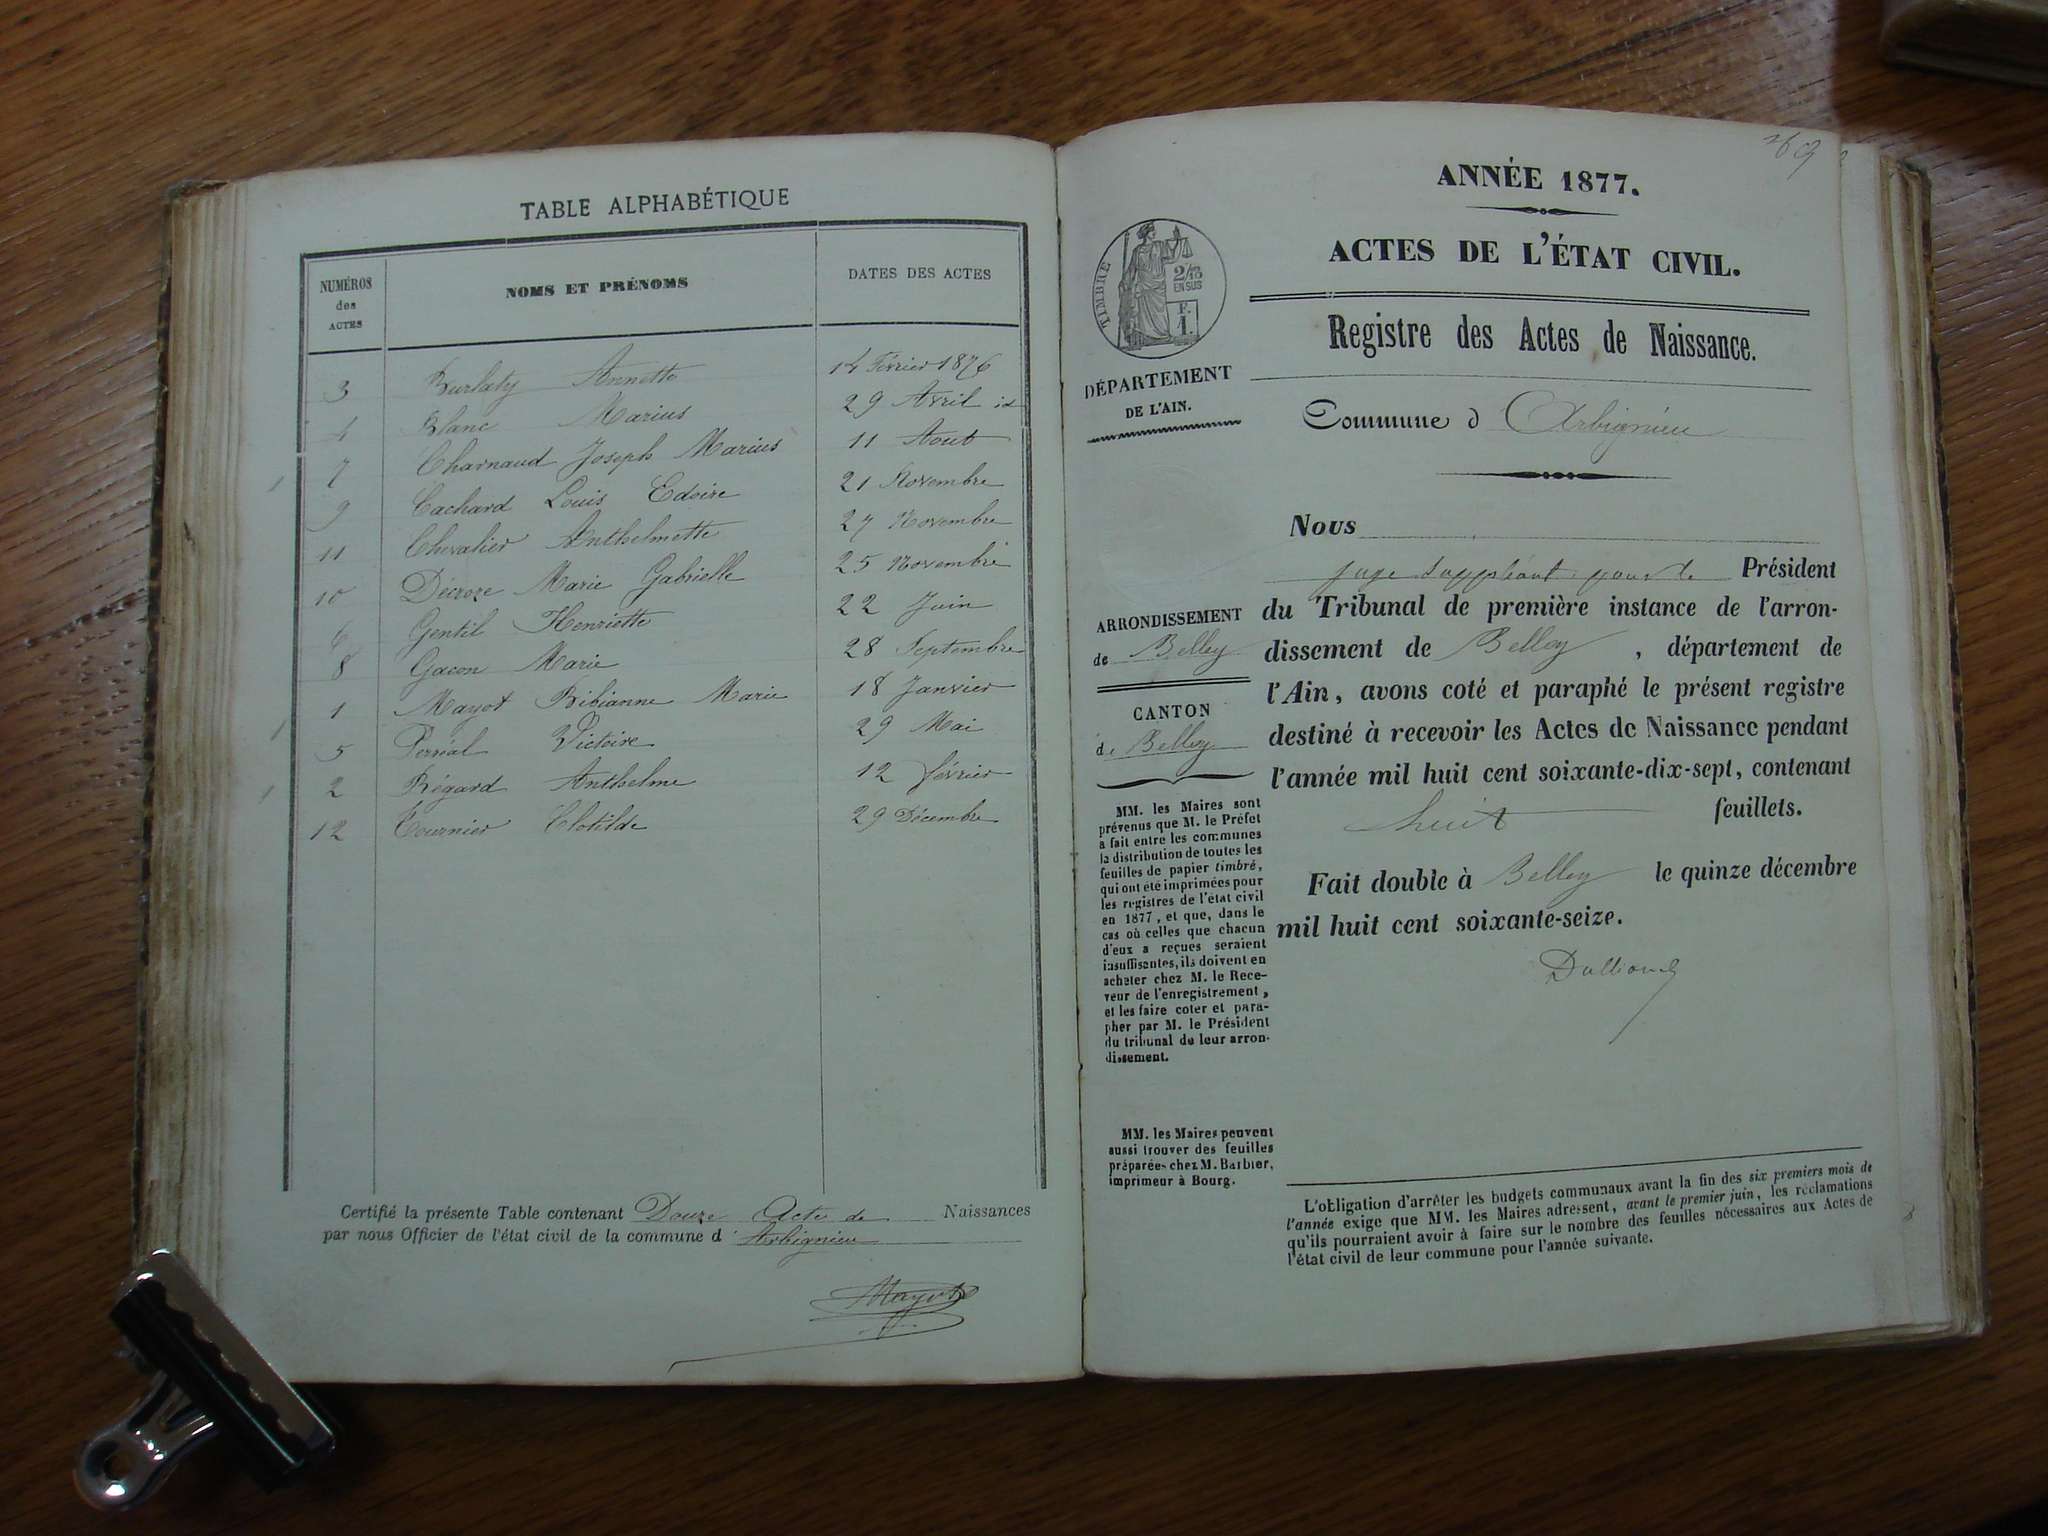 TABLE ALPHABÉTIQUE
NUMÉROS des ACTES
NOMS ET PRÉNOMS
DATES DES ACTES
3 Burlaty Annette 14 Février 1876
4 Blanc Marius 29 Avril id
7 Charnaud Joseph Marius 11 Aout
9 Cachard Louis Edoire 21 Novembre
11 Chevalier Anthelmette 27 Novembre
10 Décroze Marie Gabrielle 25 Novembre
6 Gentil Henriette 22 Juin
8 Gacon Marie 28 Septembre
1 Mayot Bibianne Marie 18 Janvier
5 Perréal Victoire 29 Mai
2 Régard Anthelme 12 février
12 Tournier Clotilde 29 Décembre
Certifié la présente Table contenant Douze Actes de Naissances
par nous Officier de l'état civil de la commune d'Arbignieu
Mayot
269
ANNÉE 1877.
ACTES DE L'ÉTAT CIVIL.
Registre des Actes de Naissance.
TIMBRE
2/10
EN SUS
F.
1.
DÉPARTEMENT
DE L'AIN.
Commune d Arbignieu
Nous
juge suppléant pour le Président
du Tribunal de première instance de l'arron-
dissement de Belley, département de
l'Ain, avons coté et paraphé le présent registre
destiné à recevoir les Actes de Naissance pendant
l'année mil huit cent soixante-dix-sept, contenant
huit feuillets.
Fait double à Belley le quinze décembre
mil huit cent soixante-seize.
ARRONDISSEMENT
de Belley
CANTON
de Belley
MM. les Maires sont
prévenus que M. le Préfet
a fait entre les communes
la distribution de toutes les
feuilles de papier timbré,
qui ont été imprimées pour
les registres de l'état civil
en 1877, et que, dans le
cas où celles que chacun
d'eux a reçues seraient
insuffisantes, ils doivent en
acheter chez M. le Rece-
veur de l'enregistrement,
et les faire coter et para-
pher par M. le Président
du tribunal de leur arron-
dissement.
MM. les Maires peuvent
aussi trouver des feuilles
préparées chez M. Barbier,
imprimeur à Bourg.
L'obligation d'arrêter les budgets communaux avant la fin des six premiers mois de
l'année exige que MM. les Maires adressent, avant le premier juin, les réclamations
qu'ils pourraient avoir à faire sur le nombre des feuilles nécessaires aux Actes de
l'état civil de leur commune pour l'année suivante.